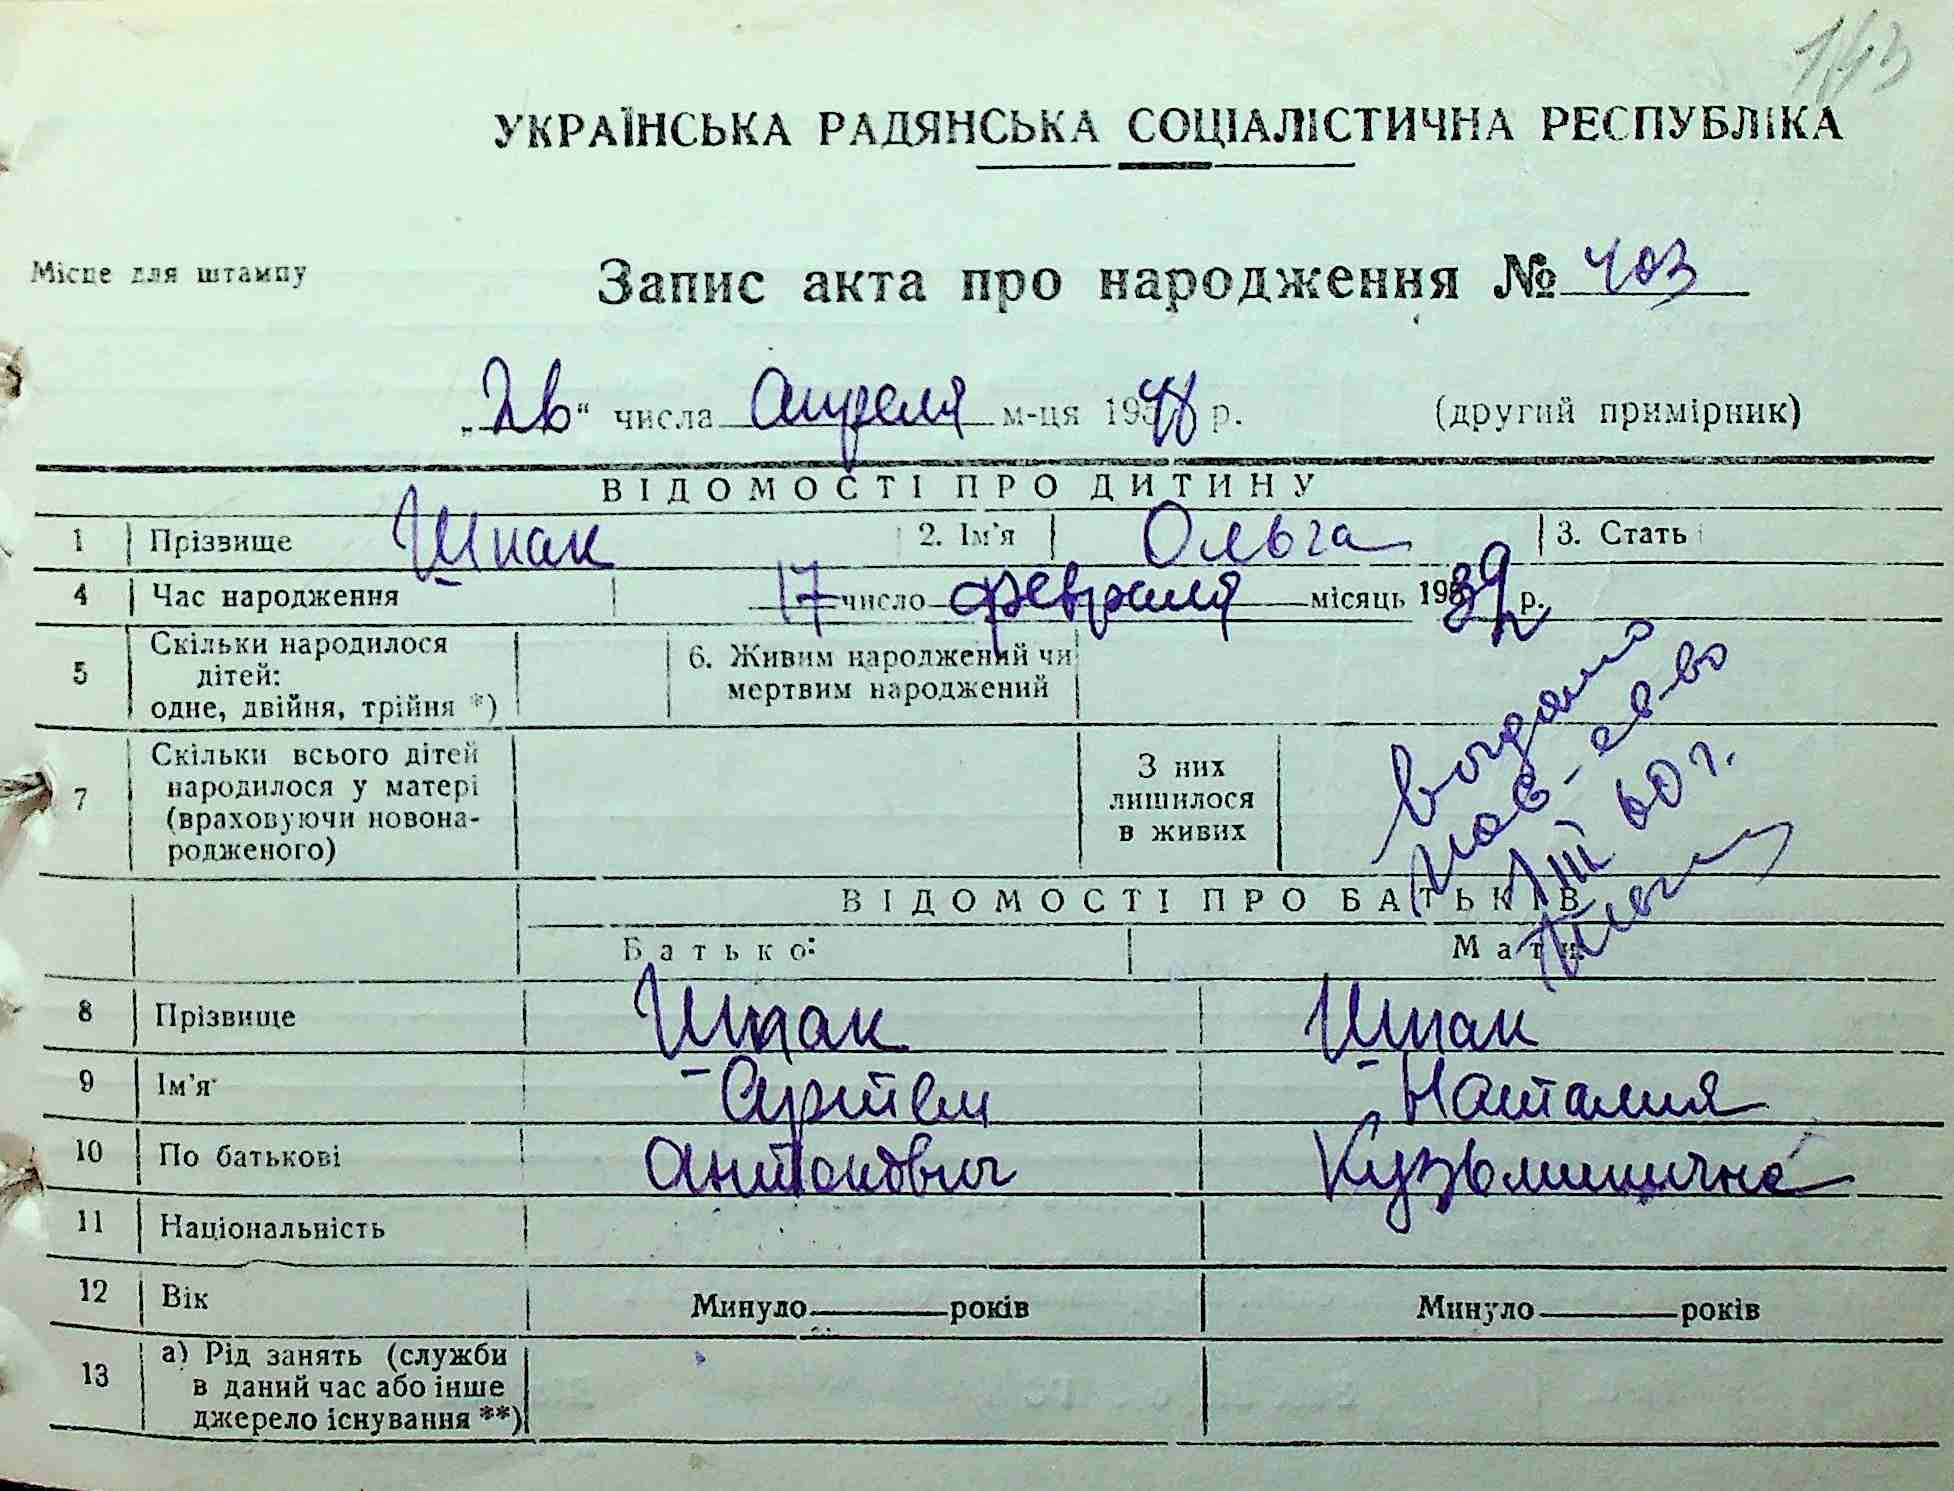 143
УКРАЇНСЬКА РАДЯНСЬКА СОЦІАЛІСТИЧНА РЕСПУБЛІКА
Місце для штампу
Запис акта про народження № 403
„26“ числа Апреля м-ця 1948 р. (другий примірник)
ВІДОМОСТІ ПРО ДИТИНУ
1 Прізвище Шпак 2. Ім'я Ольга 3. Стать
4 Час народження 17 число февраля місяць 1939 р.
5 Скільки народилося дітей: одне, двійня, трійня *) 6. Живим народжений чи мертвим народжений
7 Скільки всього дітей народилося у матері (враховуючи новонародженого) З них лишилося в живих
выдано
пов-св-во
1/III 60 г.
ВІДОМОСТІ ПРО БАТЬКІВ
Батько: Мати
8 Прізвище Шпак Шпак
9 Ім'я Артем Наталия
10 По батькові Антонович Кузьминична
11 Національність
12 Вік Минуло років Минуло років
13 а) Рід занять (служби в даний час або інше джерело існування **)